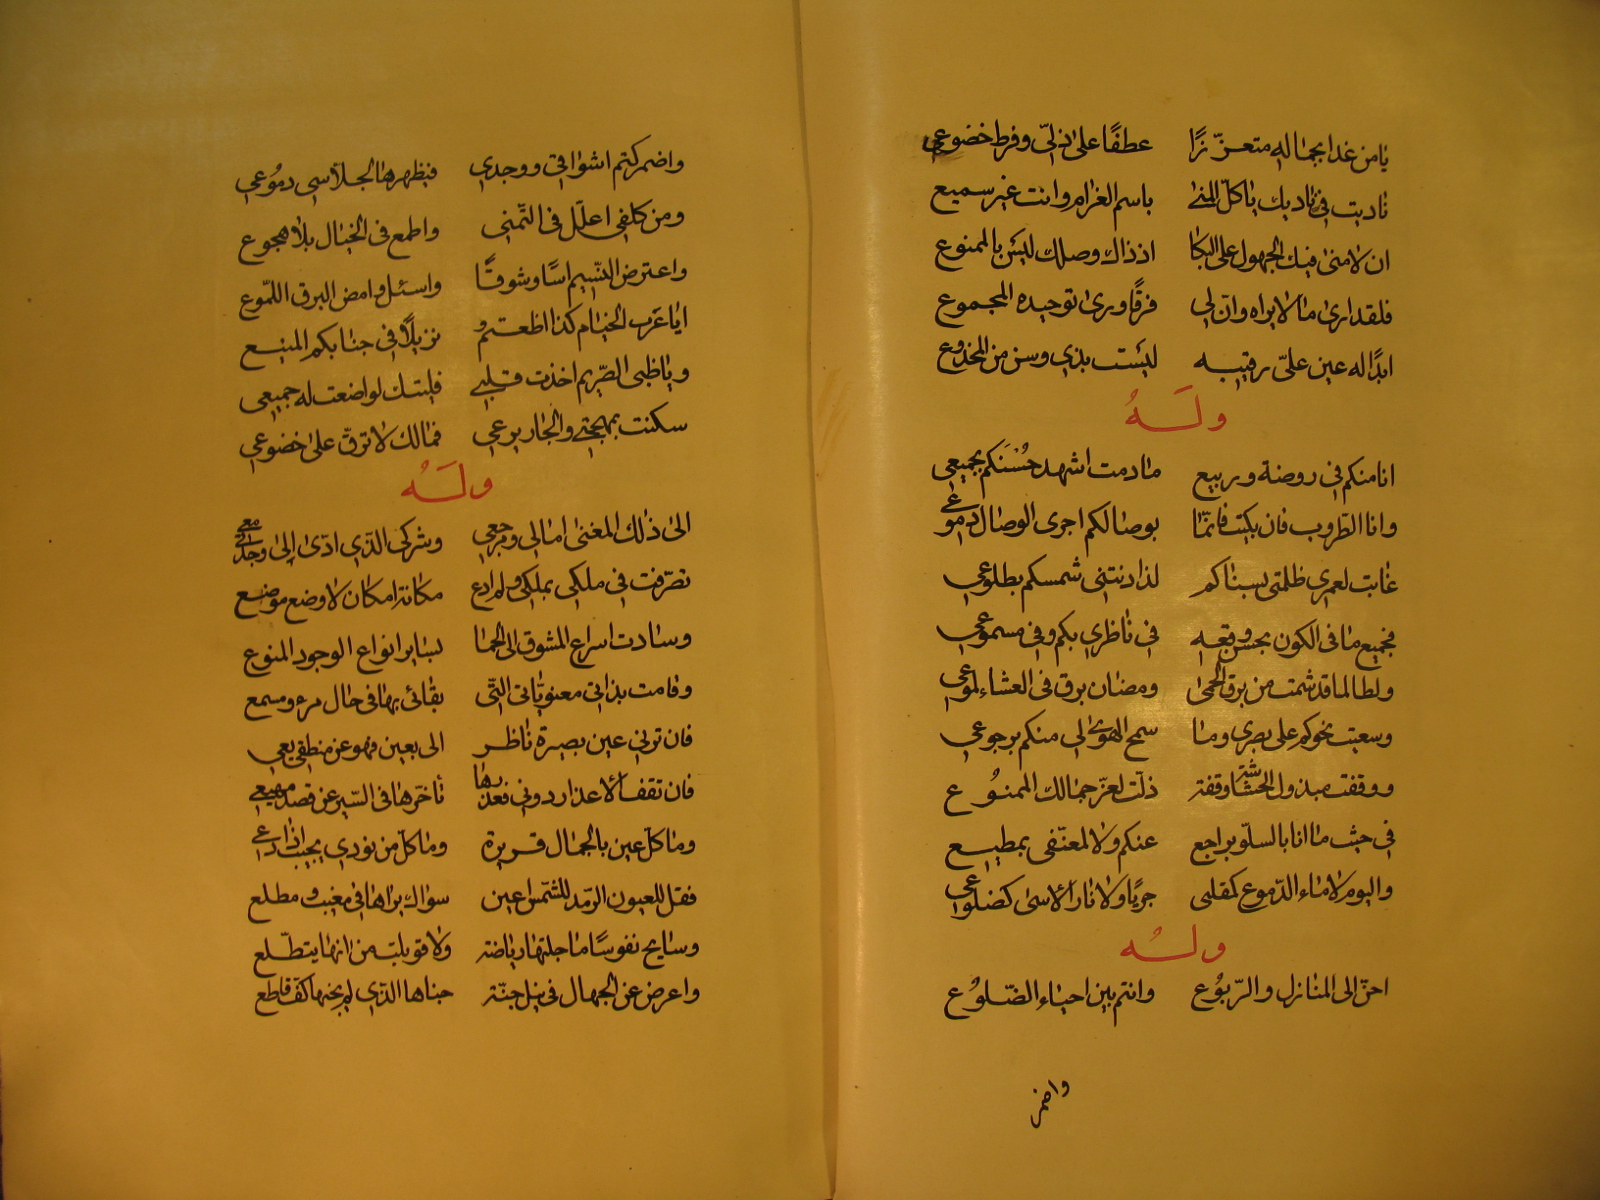 يا من غدا بجماله متعززًا عطفًا على ذلّى وفرط خضوعي
ناديت في ناديك يا كلّ المنى باسم الغرام وانت غير سميع
ان لامنى فيك الجهول على البكا اذ ذاك وصلك ليس بالممنوع
فلقد ارى ما لا يراه وان لي فرقًا ورى توحيده المجموع
ابدًا له عين علىّ رقيبه ليست بذي وسن من المخدوع
ولَهُ
انا منكم في روضة وربيع ما دمت اشهد حُسْنَكم بجميعي
وانا الطّروب فان بكيت فانمّا بوصالكم اجرى الوصال دموعي
غابت لعمري ظلمتى بسناكم لذا دنتنى شمسكم بطلوعي
فجميع ما فى الكون بحسن وقعه في ناظري بكم وفى مسموعي
ولطالما قد شمت من برق الحمى ومضان برق فى العشاء لموعي
وسعيت نحوكم على بصرى وما سمح الهوى لى منكم برجوعي
ووقفت مبذول الحشاشة وقفة ذلّت لعزّ جمالك الممنُوع
في حيث ما انا بالسلوّ براجع عنكم ولا لمعنّفى بمطيع
واليوم لا ماء الدّموع كمقلبى جريًا ولا نار الاسى كضلوعي
ولهُ
احنّ الى المنازل والرّبُوع وانتم بين احناء الضّلُوع
واضمر
واضمر كتم اشواقى ووجدي فيظهرها لجلاّسى دمُوعي
ومن كلفى اعلّل فى التّمنى واطمع فى الخيال بلا هجوع
واعترض النّسيم اسًا وشوقًا واسئل وامض البرق اللّموع
ايا عَرَب الخيام كذا اظعتم نزيلًا في جنابكم المنيع
ويا ظبى الصّريم اخذت قلبي فليتك لو اضعت له جميعى
سكنت بمهجتي والجار يرعي فمالك لا ترقّ على خضوعي
ولَهُ
الى ذلك المغنى امالى ومرجعي وشركى الذّي ادّى الى وحدتي معي
تصرّفت في ملكى بملكى ولم ادع مكانة امكان لاوضع موضع
وسادت اسراع المشوق الى الحما بساير انواع الوجود المنوع
وقامت بذاتي معنويّاتى التّى بقائى بها فى حال مرء ومسمع
فان ترني عين بصيرة ناظر الى بعين فهو عن منطقى يعي
فان تقف الاعذار دوني فعذرها تأخّرها فى السّير عن قصد مهيعي
وما كلّ عين بالجمال قريرة وما كلّ من نودي يجيب اذا دعي
فقل للعيون الرّمد للشمس اعين سواك يراها في مغيب ومطلع
وسايح نفوسًا ما جلتها رياضة ولا قوبلت من انها يتطلّع
واعرض عن الجهال في نيل جنّة جناها الذّي لم يجنها كفّ قاطع